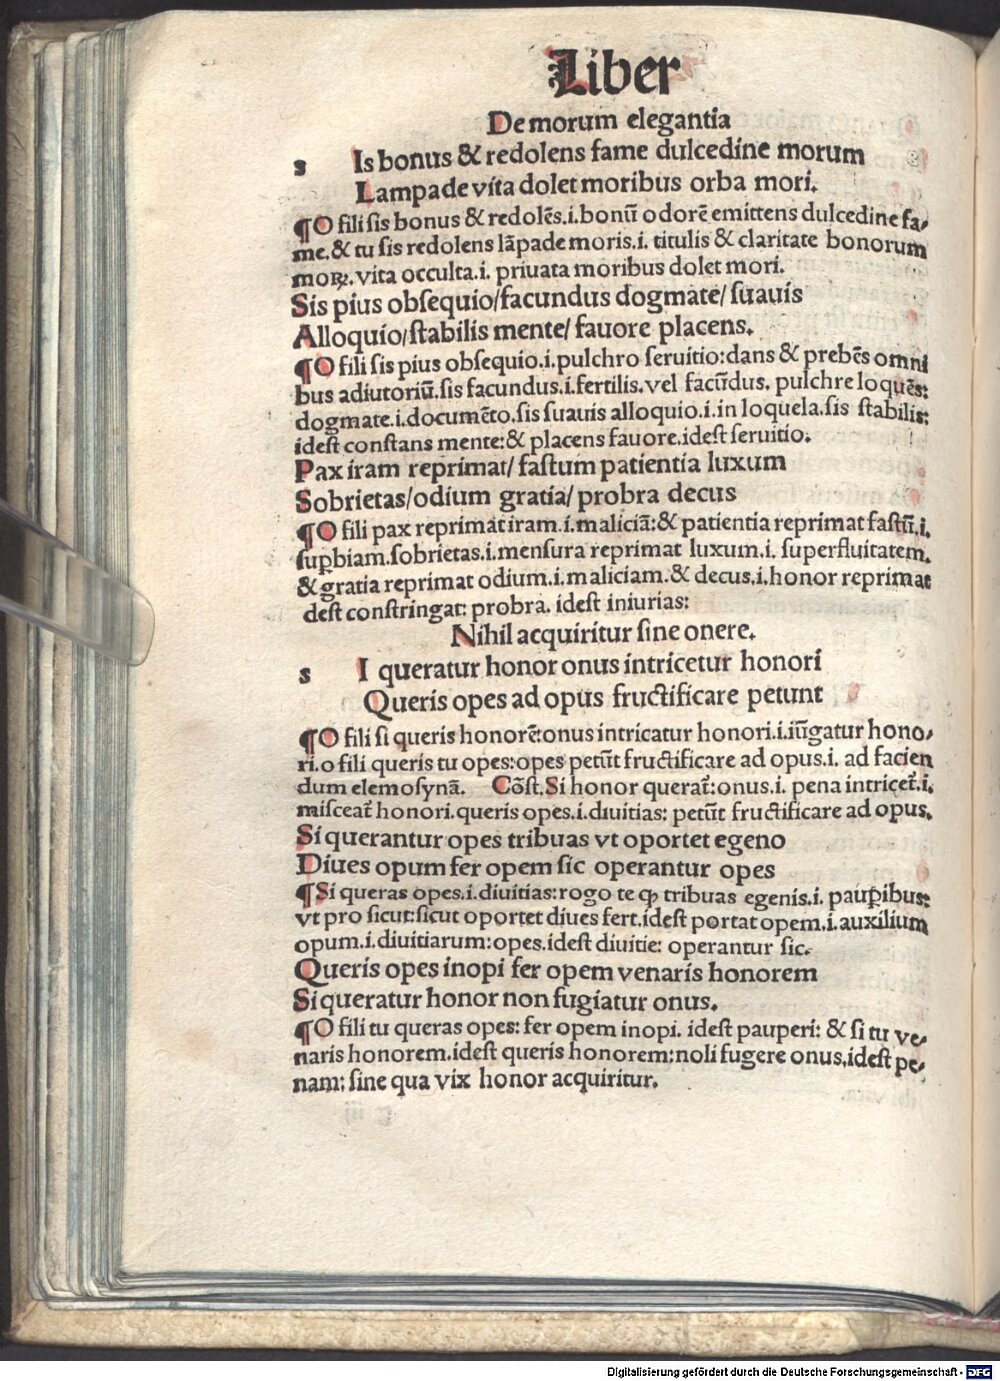 Liber
De morum elegantia
s Is bonus & redolens fame dulcedine morum
Lampade vita dolet moribus orba mori.
¶O fili sis bonus & redolēs.i.bonū odorē emittens dulcedine fa⸗
me.& tu sis redolens lāpade moris.i. titulis & claritate bonorum
moꝝ.vita occulta.i. priuata moribus dolet mori.
Sis pius obsequio/facundus dogmate/ suauis
Alloquio/stabilis mente/ fauore placens.
¶O fili sis pius obsequio.i.pulchro seruitio:dans & prebēs omni
bus adiutoriū.sis facundus.i.fertilis.vel facūdus. pulchre loquēs:
dogmate.i.documēto.sis suauis alloquio.i.in loquela.sis stabilis:
idest constans mente:& placens fauore.idest seruitio.
Pax iram reprimat/ fastum patientia luxum
Sobrietas/odium gratia/ probra decus
¶O fili pax reprimat iram.i.maliciā:& patientia reprimat fastū.i.
suꝑbiam.sobrietas.i.mensura reprimat luxum.i. superfluitatem.
& gratia reprimat odium.i.maliciam.& decus.i.honor reprimat
dest constringat: probra. idest iniurias:
Nihil acquiritur sine onere.
s I queratur honor onus intricetur honori
Queris opes ad opus fructificare petunt
¶O fili si queris honorē:onus intricatur honori.i.iūgatur hono⸗
ri.o fili queris tu opes:opes petūt fructificare ad opus.i. ad facien
dum elemosynā. Cōst.Si honor querat᷑:onus.i. pena intricet᷑.i.
misceat᷑ honori.queris opes.i.diuitias: petūt fructificare ad opus.
Si querantur opes tribuas vt oportet egeno
Diues opum fer opem sic operantur opes
¶Si queras opes.i.diuitias:rogo te ꝙ tribuas egenis.i. pauꝑibus:
vt pro sicut:sicut oportet diues fert.idest portat opem.i.auxilium
opum.i.diuitiarum:opes.idest diuitie: operantur sic.
Queris opes inopi fer opem venaris honorem
Si queratur honor non fugiatur onus.
¶O fili tu queras opes: fer opem inopi. idest pauperi: & si tu ve⸗
naris honorem.idest queris honorem:noli fugere onus.idest pe⸗
nam: sine qua vix honor acquiritur.
Digitalisierung gefördert durch die Deutsche Forschungsgemeinschaft - DFG